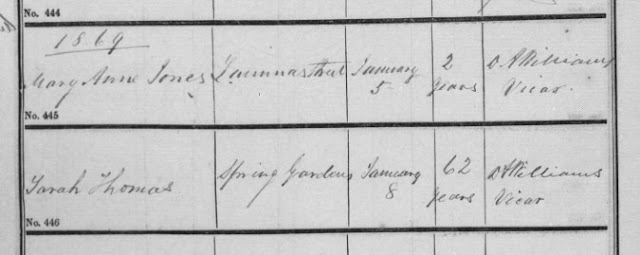 No. 444
1869
Mary Anne Jones January 2 D. A Williams
5 years Vicar
No. 445
Sarah Thomas Spring Gardens January 62 D A Williams
8 years Vicar
No. 446